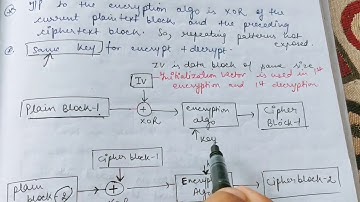 I/P to the encryption algo is XOR of the
current plaintext block and the preceding
ciphertext block. So, repeating patterns not
exposed.
Same key for encrypt + decrypt.
IV is data block of same size
Initialization vector is used in 1st
encryption and 1st decryption
IV
Plain Block-1
+
XOR
encryption
algo
Cipher
Block-1
key
Cipher block-1
Plain
block-2
+
XOR
Encryp
Algo
Cipherblock-2